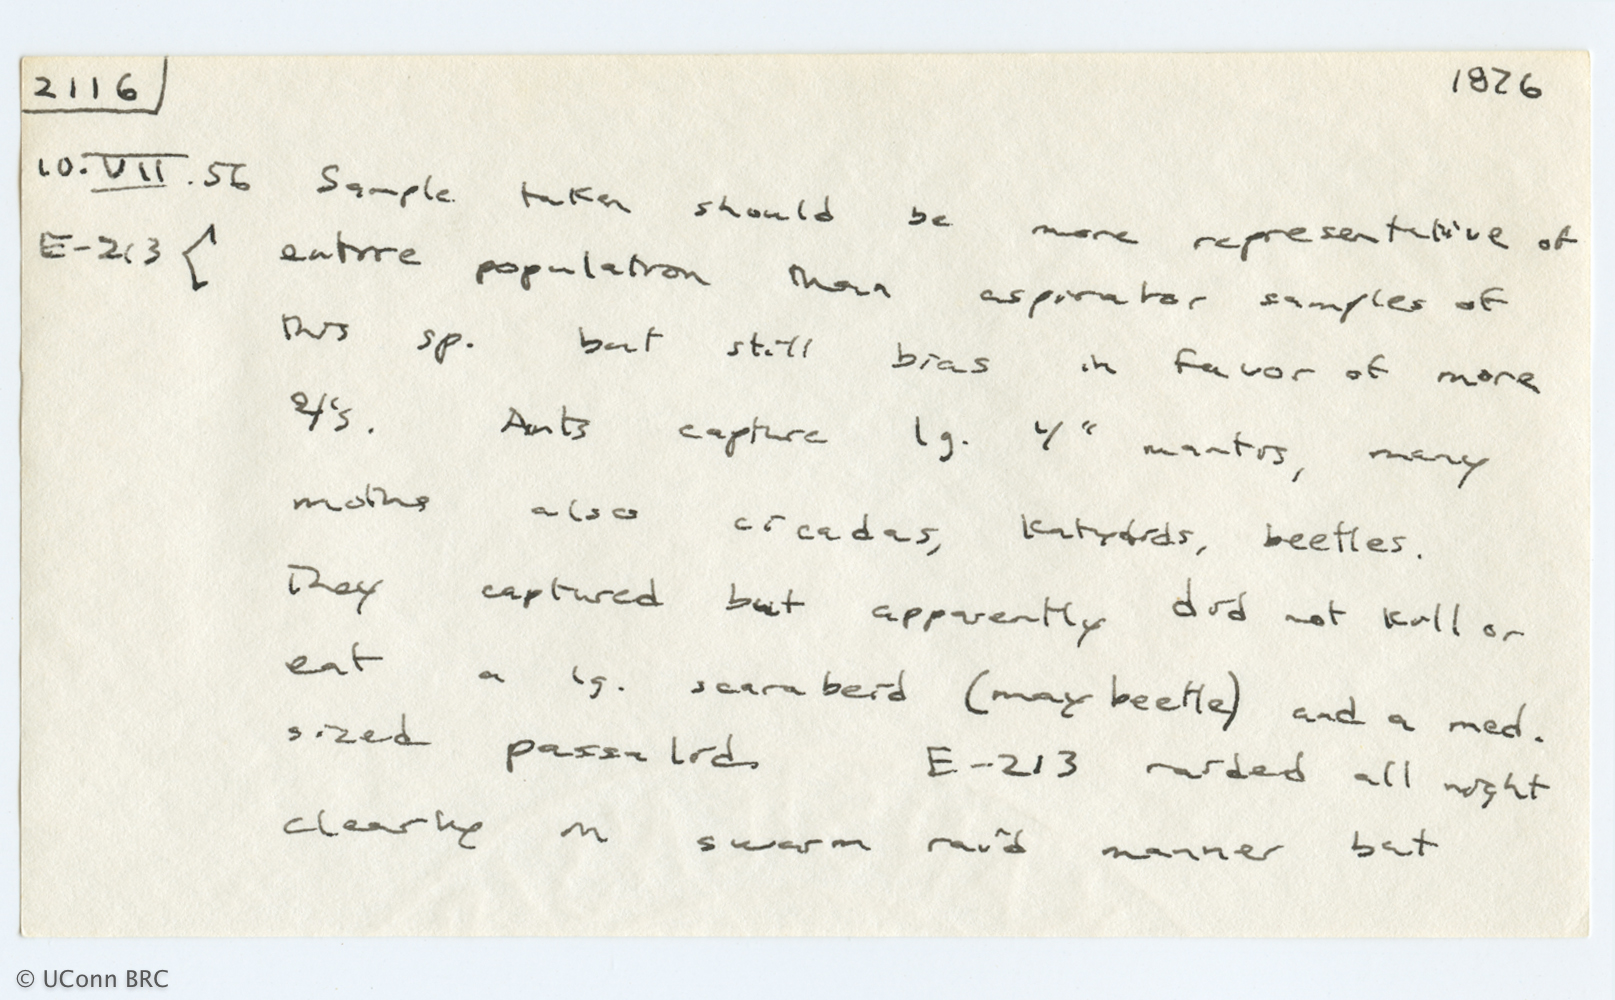 2116 1826
10.VII.56 Sample taken should be more representative of
E-213 { entire population than aspirator samples of
this sp. but still bias in favor of more
Ants capture lg. mantis, many
moths also cicadas, katydids, beetles.
They captured but apparently did not kill or
eat a lg. scarabeid (may beetle) and a med.
sized passalid. E-213 raided all night
clearly in swarm raid manner but
© UConn BRC